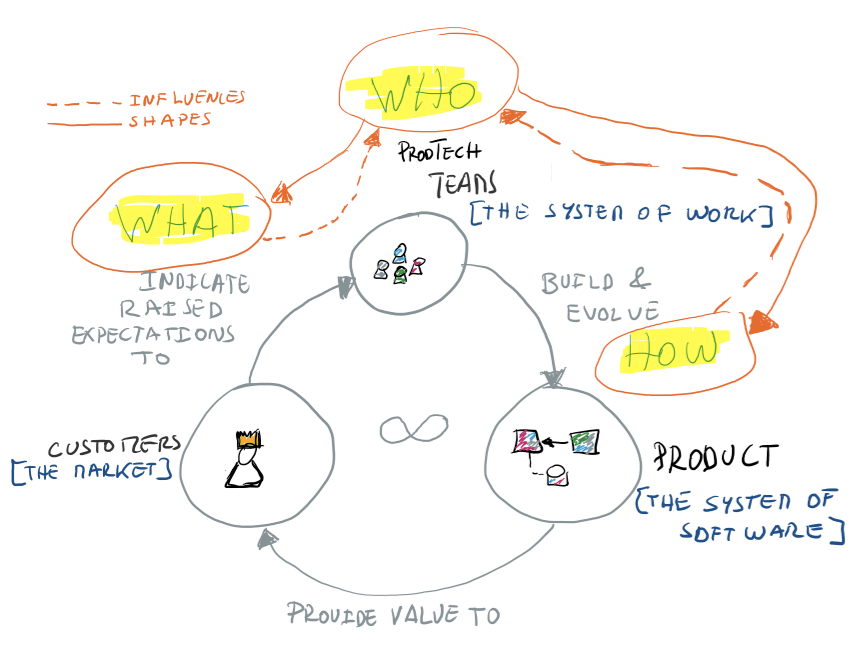 INFLUENCES
SHAPES
WHO
PRODTECH
TEAMS
[THE SYSTEM OF WORK]
WHAT
INDICATE
RAISED
EXPECTATIONS
TO
BUILD &
EVOLVE
HOW
CUSTOMERS
[THE MARKET]
PRODUCT
[THE SYSTEM OF
SOFTWARE]
PROVIDE VALUE TO